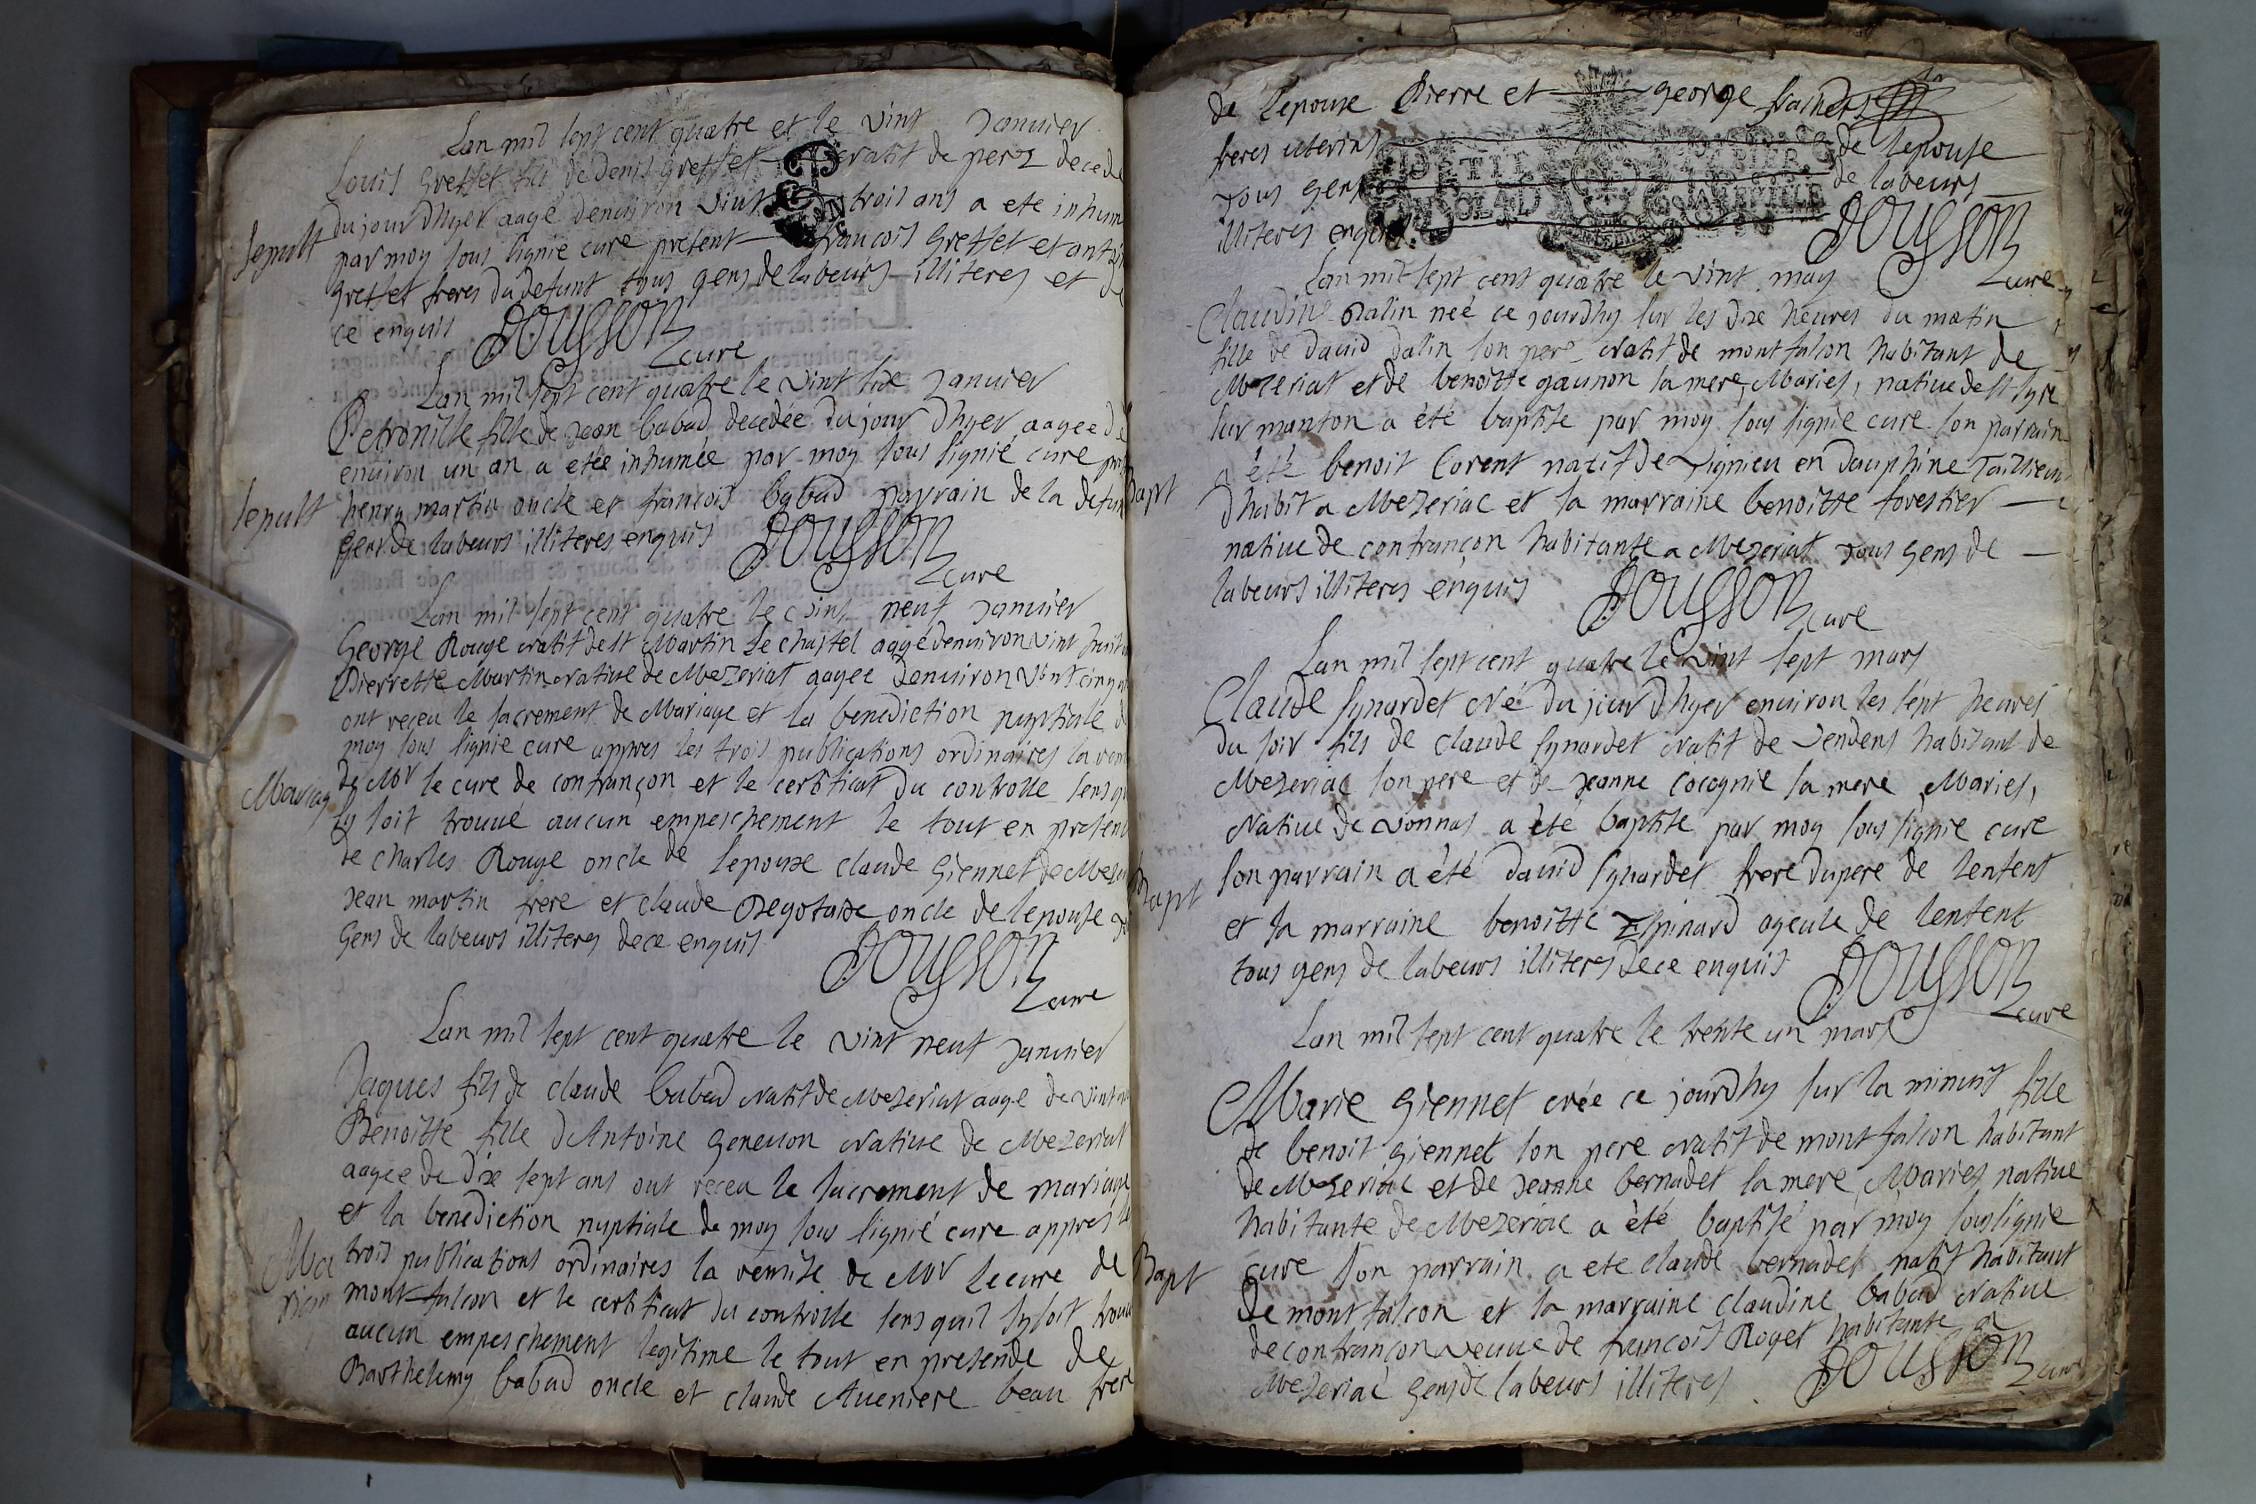 Lan mil sept cent quatre et le vint Janvier
Louis Greffet fils de Denis Greffet natif de perz decede
du jour dhyer aagé denuiron vint trois ans a ete inhum
Sepult
par moy sous signie cure present francois Greffet et antoin
Greffet freres du defunt tous gens de labeurs illiteres et de
ce enquis
Dousson
cure
Lan mil sept cent quatre le vint six Janvier
Petronille fille de Jean babad decedée du jour dhyer aagee de
enuiron un an a etée inhumée par moy sous signié cure pre
Sepult
henry martin oncle et francois babad parrain de la defun
gens de labeurs illiteres enquis
Dousson
cure
Lan mil sept cent quatre le vint neuf Januier
George Rouge natif de st Martin le chastel aagé denuiron vint huit
Pierrette Martin natiue de Mezeriat aagee denuiron vint cinq
ont receu le sacrement de Mariage et la benediction nuptiale de
moy sous signie cure appres les trois publications ordinaires la rem
de Mr le cure de confrançon et le certificat du controlle sens qu
Mariag
sy soit trouué aucun empeschement le tout en presen
de charles Rouge oncle de lepoux claude Giennet de Meze
Jean martin frere et claude oncle de lepouse
Gens de labeurs illiteres de ce enquis
Dousson
cure
Lan mil sept cent quatre le vint neuf Januier
Jaques fils de claude babad natif de Mezeriat aagé de vint
Benoitte fille dAntoine Geneuon natiue de Mezeriat
aagee de dix sept ans ont receu le sacrement de mariage
et la benediction nuptiale de moy sous signié cure appres les
Ma
riag
trois publications ordinaires la remise de Mr le cure de
mont falcon et le certificat du controlle sens quil sy soit trouu
aucun empeschement legitime le tout en presence de
Barthelemy babad oncle et claude Aueniere beau frere
de lepoux Pierre et George
freres uterins de lepouse
tous gens de labeurs
illiteres enquis
PETIT PAPIER
Dousson
cure
Lan mil sept cent quatre le vint may
Claudine Dalin neé ce jourdhy sur les dix heures du matin
fille de Dauid Dalin son pere natif de mont falcon habitant de
Mezeriat et de benoitte gaunon sa mere, Maries, natiue de st Syre
sur manton a été baptise par moy sous signie cure son parrain
a été benoit Corent natif de Vignieu en Dauphine Taillieur
Bapt
dhabit a Mezeriac et sa marraine benoitte forestier
natiue de confrançon habitante a Mezeriat tous gens de
labeurs illiteres enquis
Dousson
cure
Lan mil sept cent quatre le vint sept mars
Claude Synardet né du jour dhyer enuiron les sept heures
du soir fils de claude Synardet natif de Vendens habitant de
Mezeriac son pere et de Jeanne Cocognie sa mere Maries,
natiue de vonnas a été baptise par moy sous signie cure
Bapt
son parrain a été Dauid Synardet frere du pere de lenfent
et sa marraine benoitte Espinard ayeule de lenfent
tous gens de labeurs illiteres de ce enquis
Dousson
cure
Lan mil sept cent quatre le trente un mars
Marie Giennet née ce jourdhy sur la minuit fille
de benoit Giennet son pere natif de mont falcon habitant
de Mezeriac et de Jeanne bernadet sa mere Maries natiue
habitante de Mezeriac a été baptisé par moy sous signie
Bapt
cure son parrain a ete claude bernadet natif habitant
de mont falcon et sa marraine claudine babad natiue
de confrançon veuue de francois Royet habitante a
Mezeriac gens de labeurs illiteres
Dousson
cure